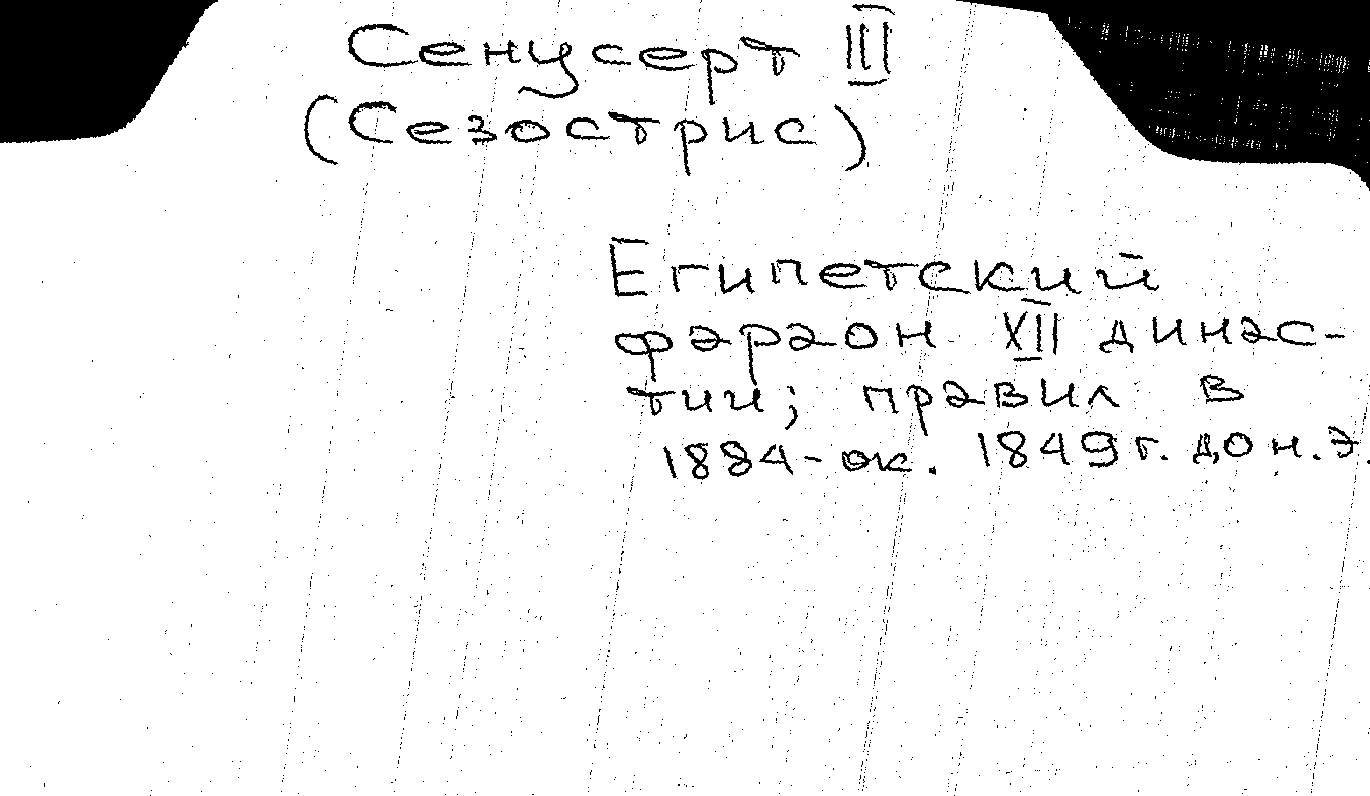 Сенусерт III
(Сезострис)
Египетский
фараон XII динас-
тии; правил в
1884-ок. 1849 г. до н.э.